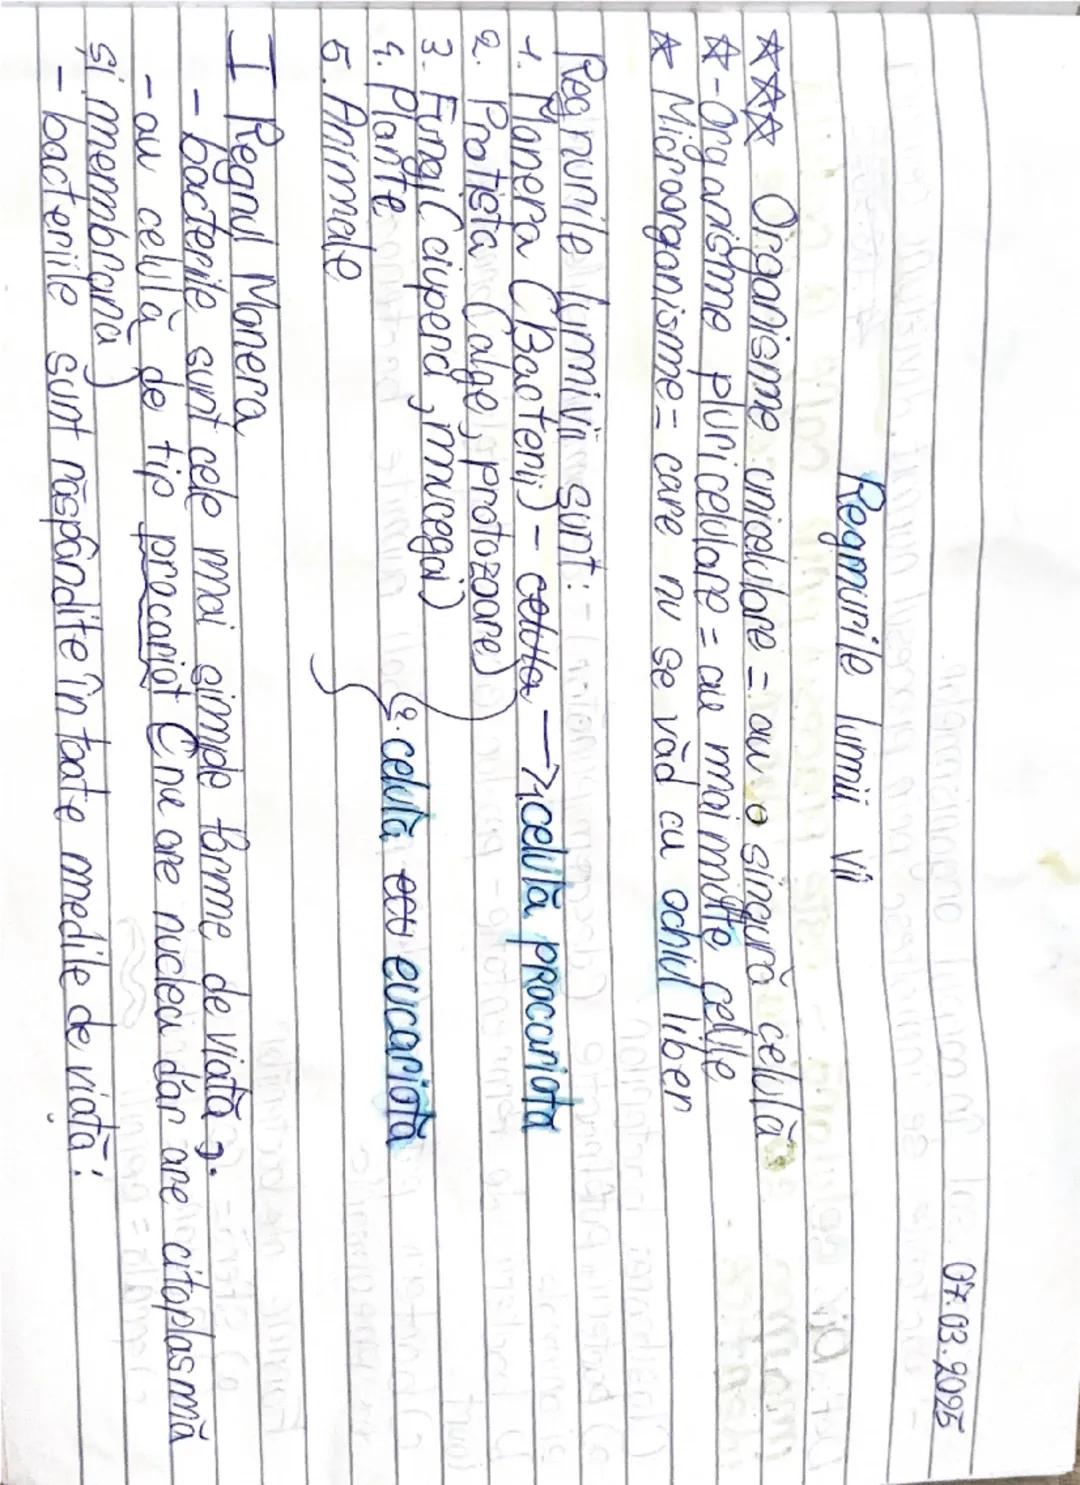 07.03.2025
Regnurile lumii vii
☆☆☆ Organisme unicelulare = au o singură celulă
☆ - Organisme pluricelulare = au mai multe celule
☆ Microorganisme = care nu se văd cu ochiul liber
Regnurile lumii vii sunt:
1. Monera (Bacterii) - celula → 1. celulă procariota
2. Protista (alge, protozoare)
3. Fungi (ciuperci, mucegai)
4. Plante
2. celulă eucariotă
5. Animale
I Regnul Monera
- bacteriile sunt cele mai simple forme de viată;
- au celulă de tip procariot (nu are nucleu dar are citoplasmă
și membrană)
- bacteriile sunt răspândite în toate mediile de viată: